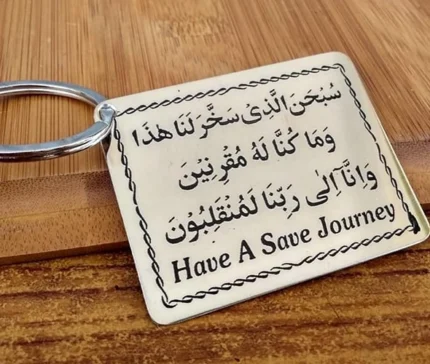 سُبْحٰنَ الَّذِىْ سَخَّرَ لَنَا هٰذَا
وَمَا كُنَّا لَهٗ مُقْرِنِيْنَ
وَاِنَّآ اِلٰى رَبِّنَا لَمُنْقَلِبُوْنَ
Have A Save Journey